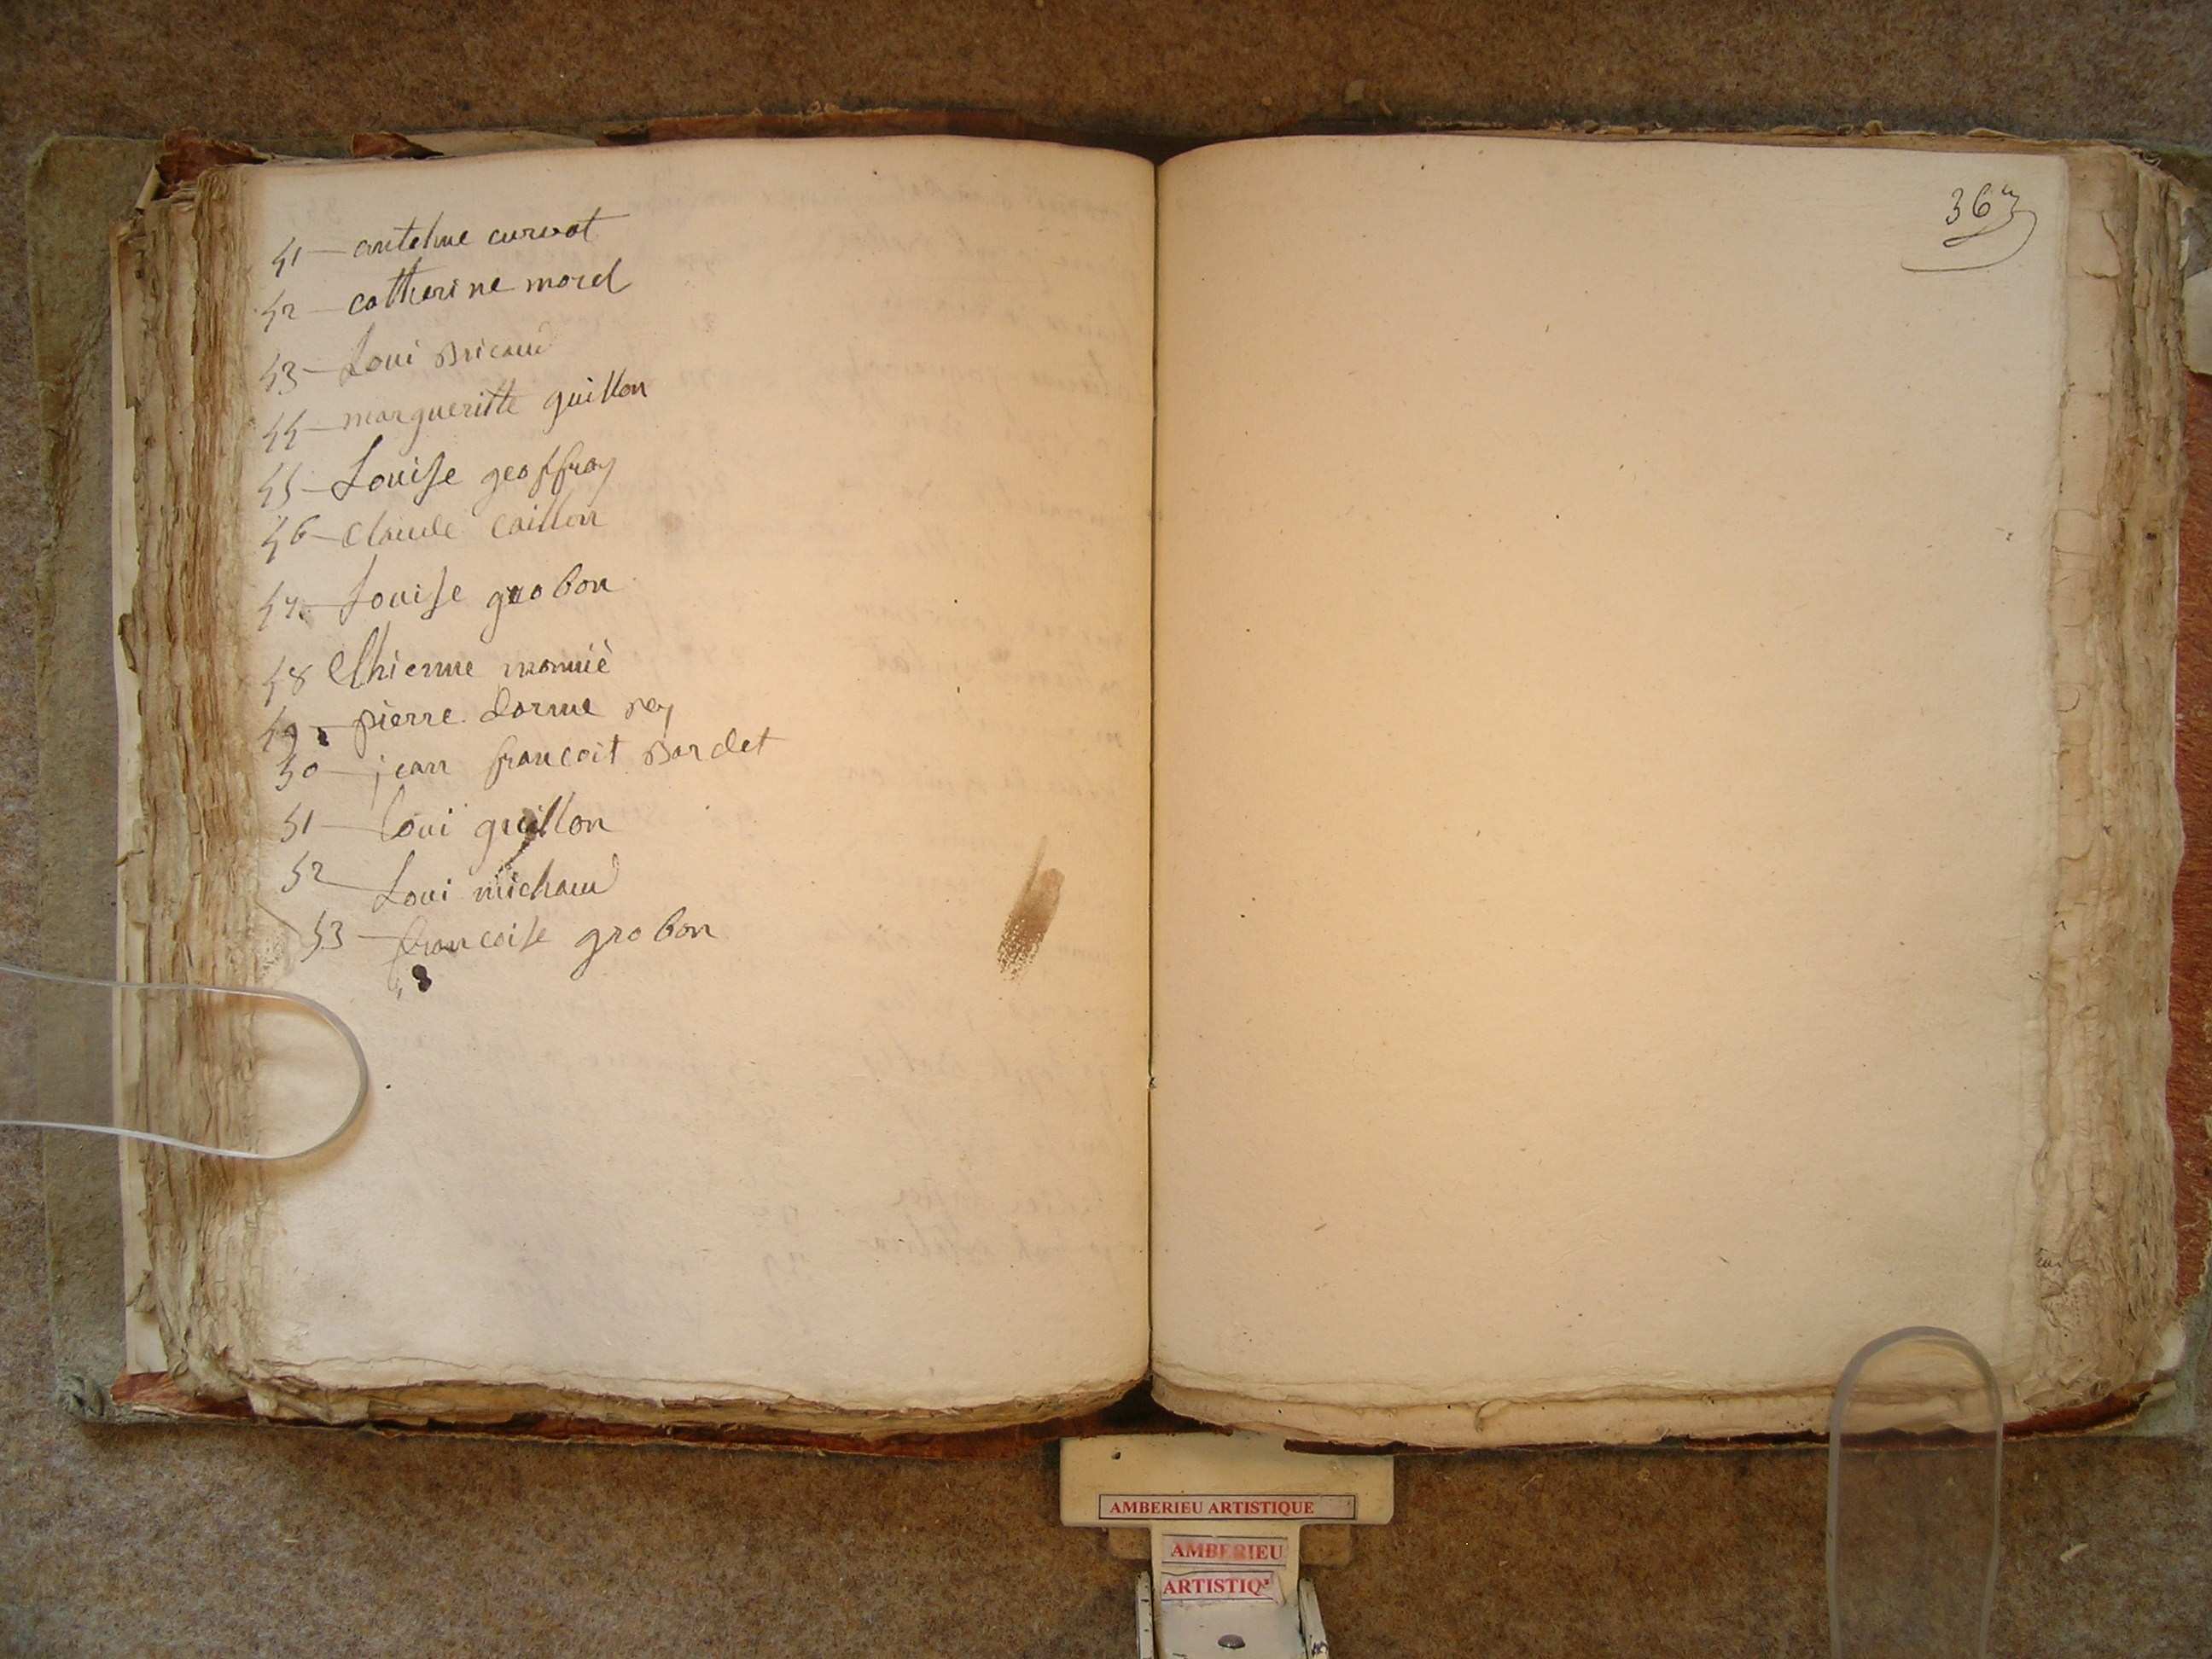 41 — antelme curvot
42 — catherine morel
43 — Loui Bricaud
44 — margueritte guillon
45 — Louise geoffray
46 — Claude Caillon
47 — Louise grobon
48 Ethienne monnié
49 — pierre dorme rey
50 — jean francoit Bardet
51 — Loui guillon
52 — Loui michaud
53 — francoise grobon
367
AMBERIEU ARTISTIQUE
AMBERIEU
ARTISTIQ